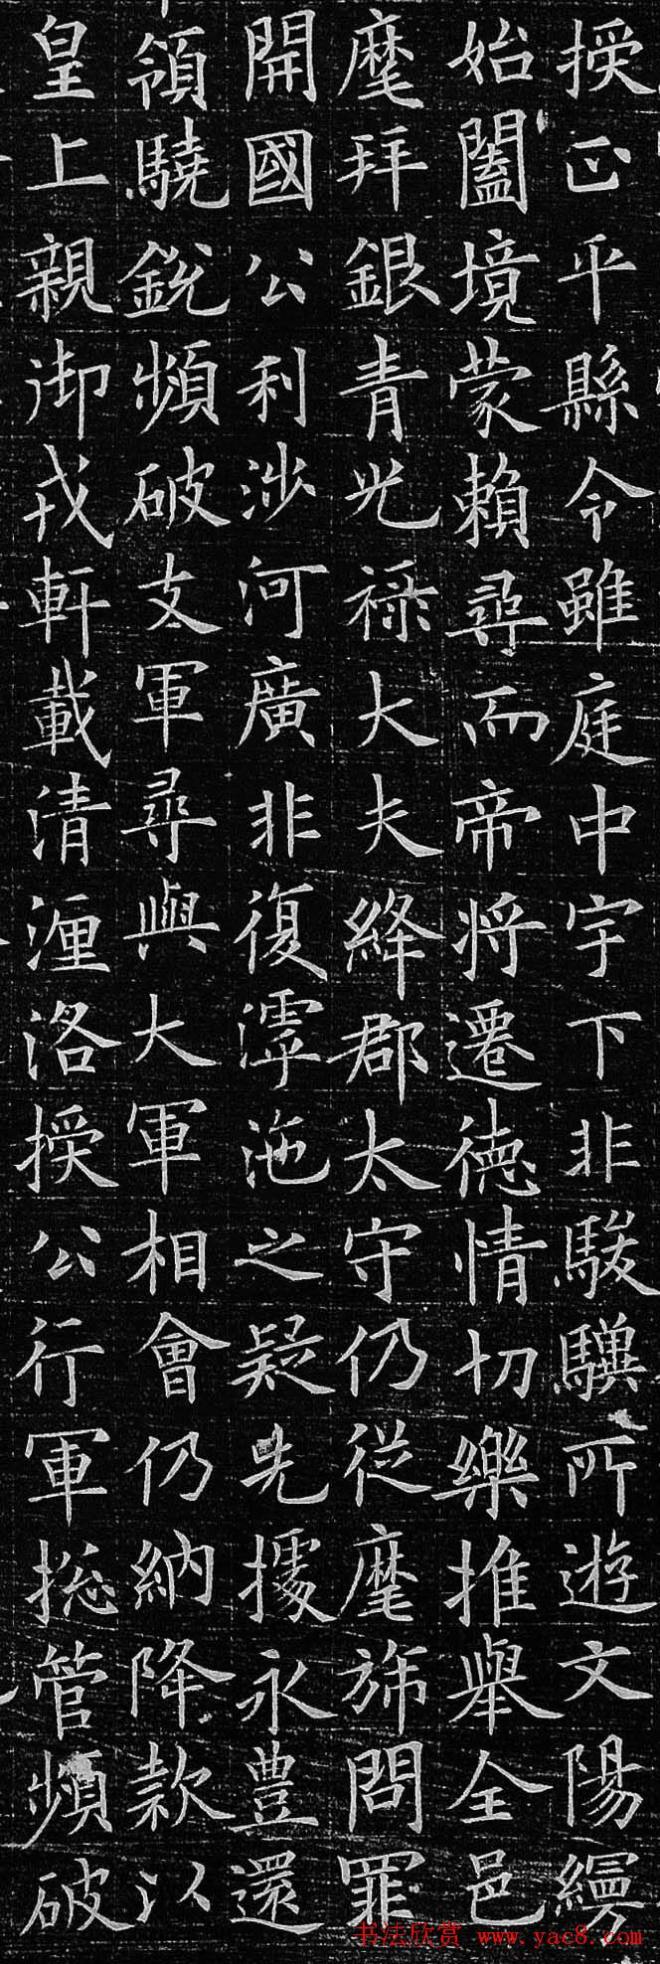 授正平縣令雖庭中宇下非駿驥所遊文陽纓
始闔境蒙賴尋而帝將遷德情切樂推舉全邑
麾拜銀青光祿大夫絳郡太守仍從麾旆問罪
開國公利涉河廣非復滹沲之疑先據永豊還
領驍銳頻破支軍尋與大軍相會仍納降款以
皇上親御戎軒載清湹洛授公行軍摠管頻破
书法欣赏 www.yac8.com